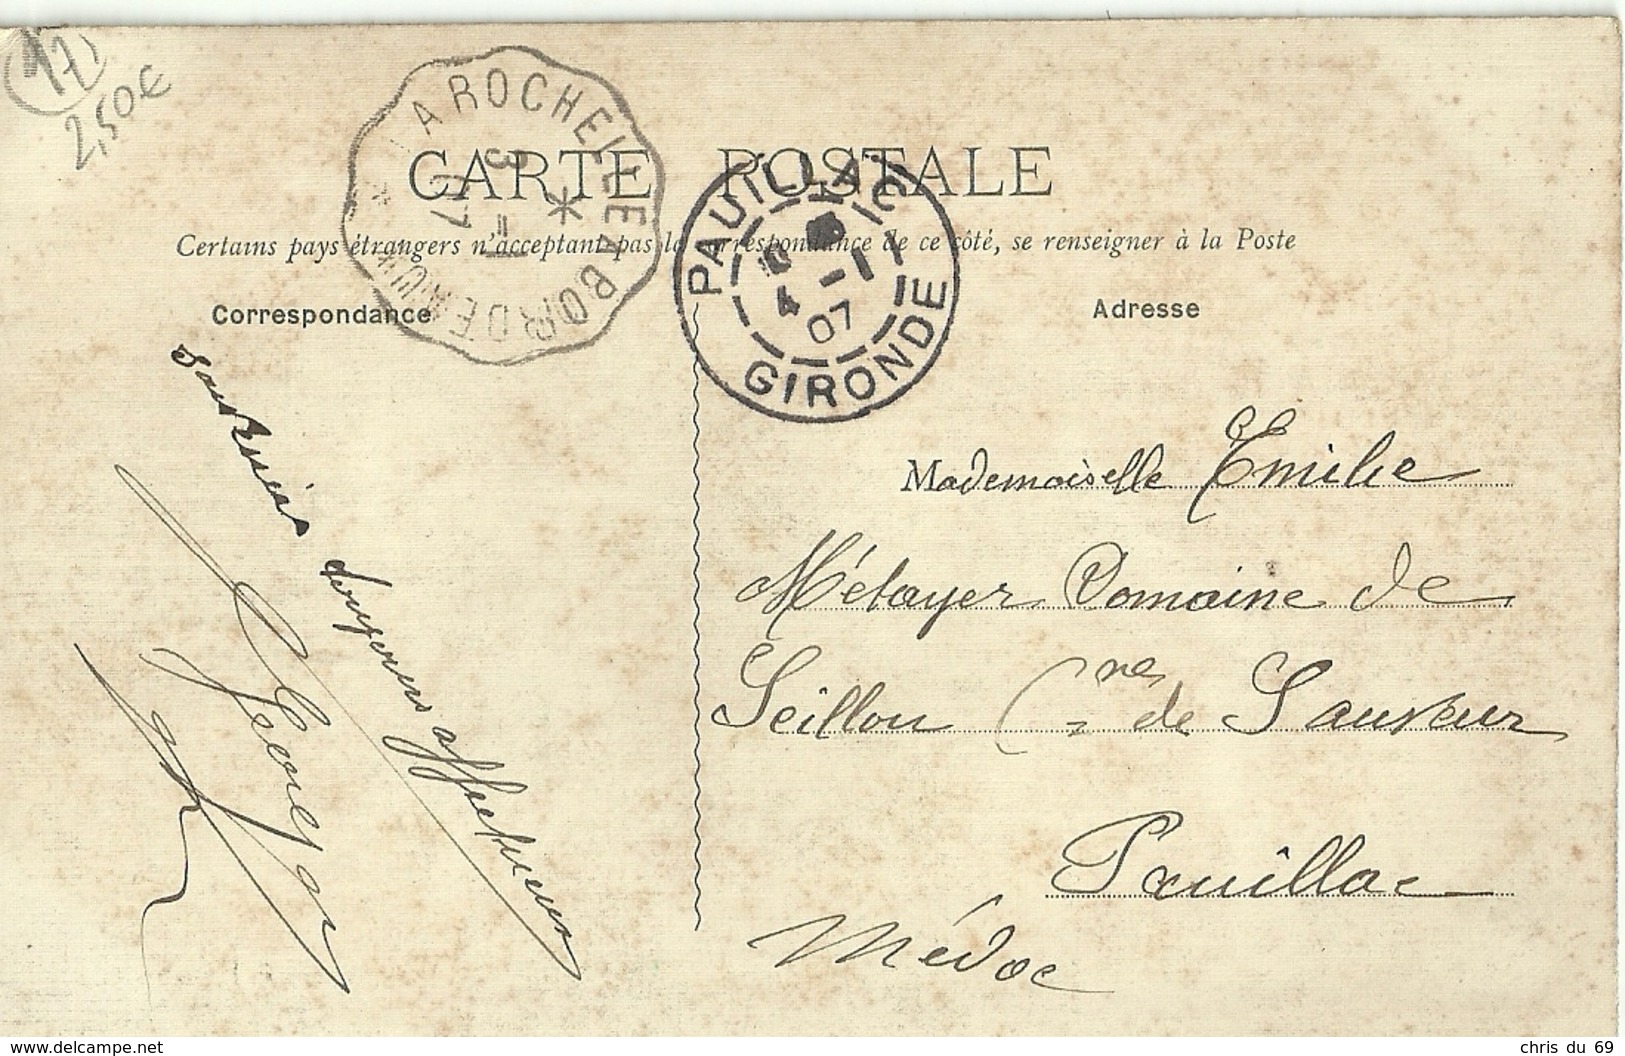 17
2,50€
LA ROCHELLE A BORDEAUX
3 - 1
07
CARTE POSTALE
PAUILLAC
4 -1
07
GIRONDE
Certains pays étrangers n'acceptant pas la correspondance de ce côté, se renseigner à la Poste
Correspondance
Adresse
affectueux
Georges
Mademoiselle Emilie
Métayer Domaine de
Seillon Cne de St Sauveur
Pauillac
Médoc
www.delcampe.net
chris du 69